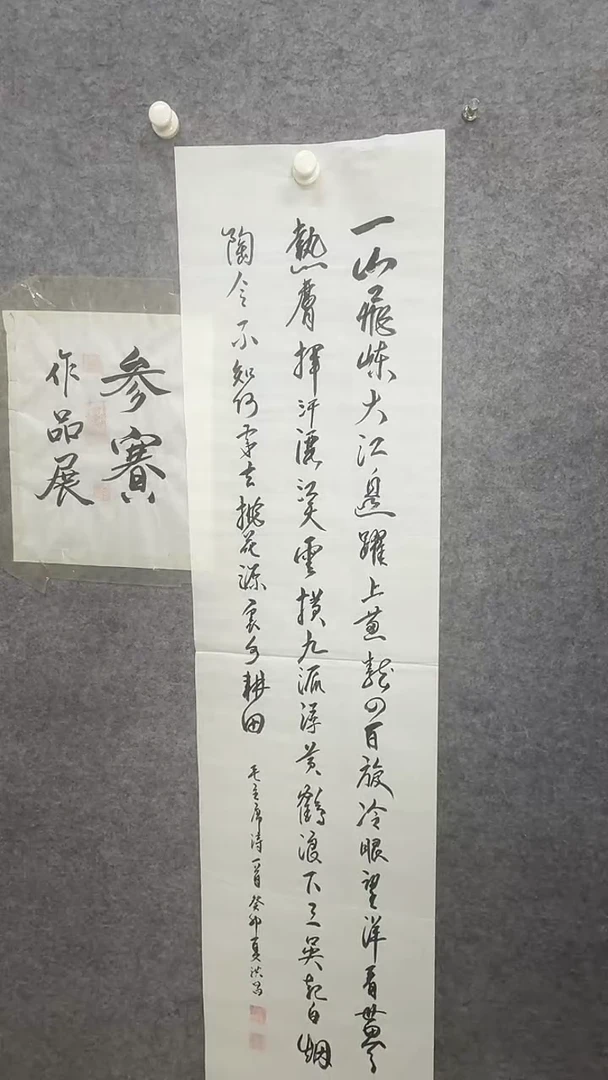 一山飛峙大江邊躍上蔥龍四百旋冷眼望洋看世界
熱膚揮汗灑江天雲橫九派浮黃鶴浪下三吳起白烟
陶令不知何處去桃花源裏可耕田
毛主席詩一首癸卯夏洪
參賽
作品展